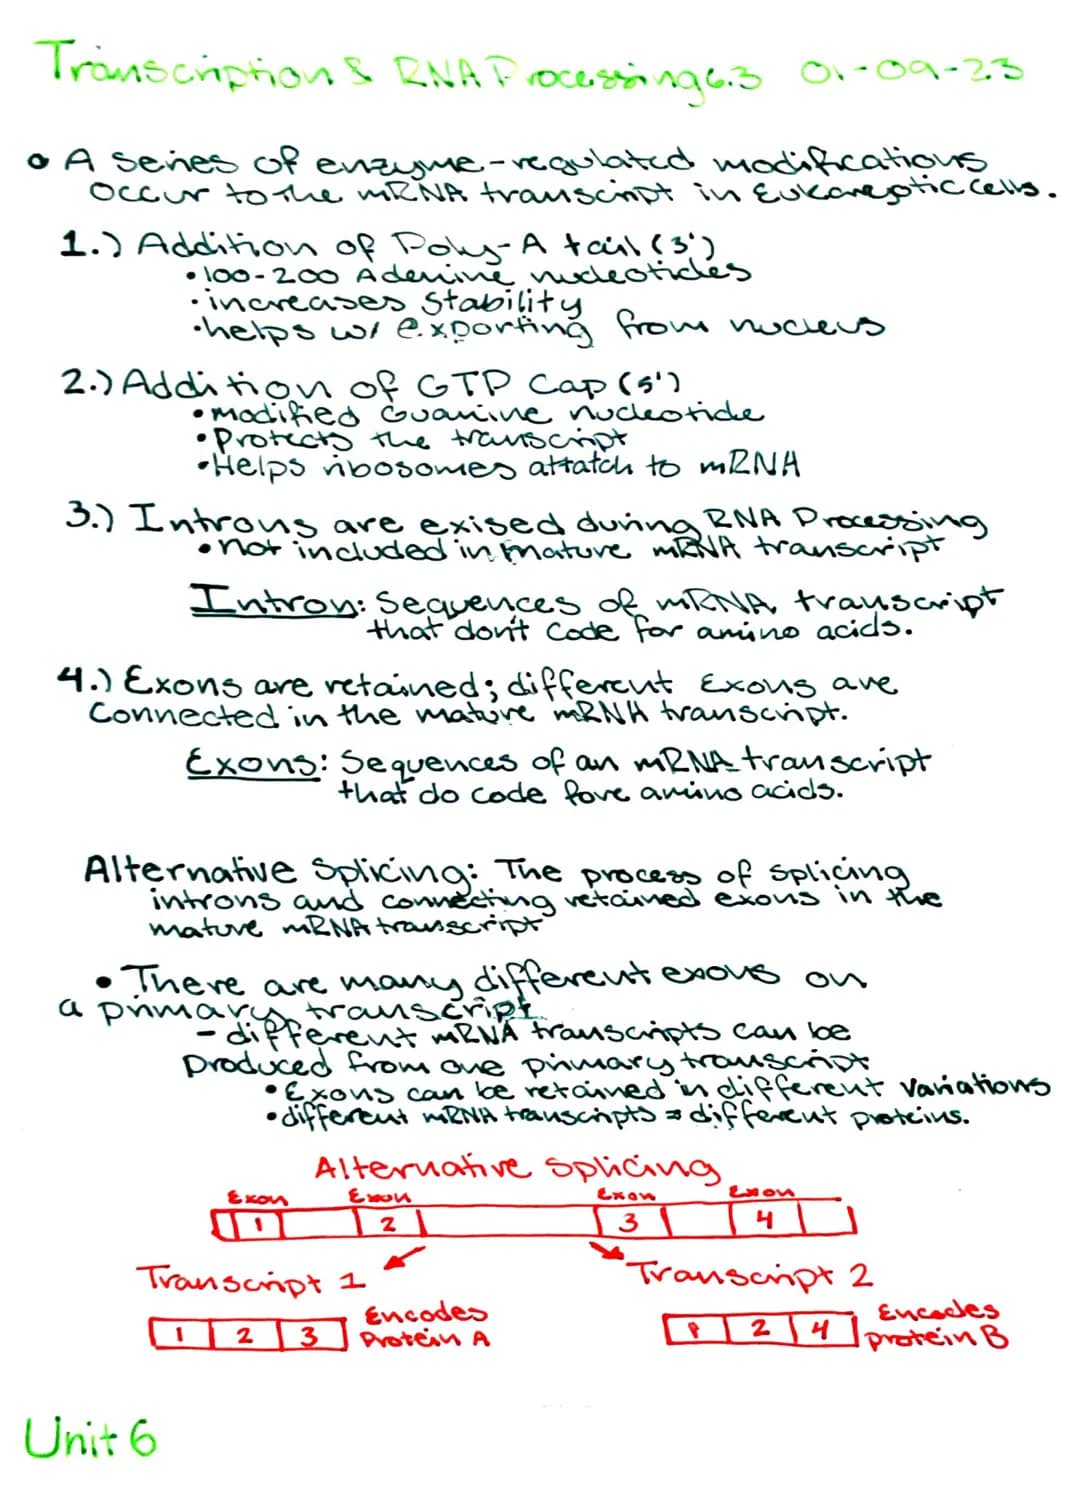 Transcription & RNA Processing 6.3 01-09-23
• A series of enzyme-regulated modifications
occur to the mRNA transcript in Eukareptic cells.
1.) Addition of Poly-A tail (3')
• 100-200 Adenine nucleotides
• increases stability
• helps w/ exporting from nucleus
2.) Addition of GTP Cap (5')
• modified Guanine nucleotide
• Protects the transcript
• Helps ribosomes attatch to mRNA
3.) Introns are exised during RNA Processing
• not included in mature mRNA transcript
Intron: Sequences of mRNA transcript
that don't code for amino acids.
4.) Exons are retained; different Exons are
Connected in the mature mRNA transcript.
Exons: Sequences of an mRNA transcript
that do code fore amino acids.
Alternative Splicing: The process of splicing
introns and connecting retained exons in the
mature mRNA transcript
• There are many different exons on
a primary transcript.
- different mRNA transcripts can be
Produced from one primary transcript
• Exons can be retained in different variations
• different mRNA transcripts = different proteins.
Alternative Splicing
Exon Exon Exon Exon
1 2 3 4
Transcript 1 Transcript 2
Encodes Encodes
1 2 3 Protein A 1 2 4 protein B
Unit 6